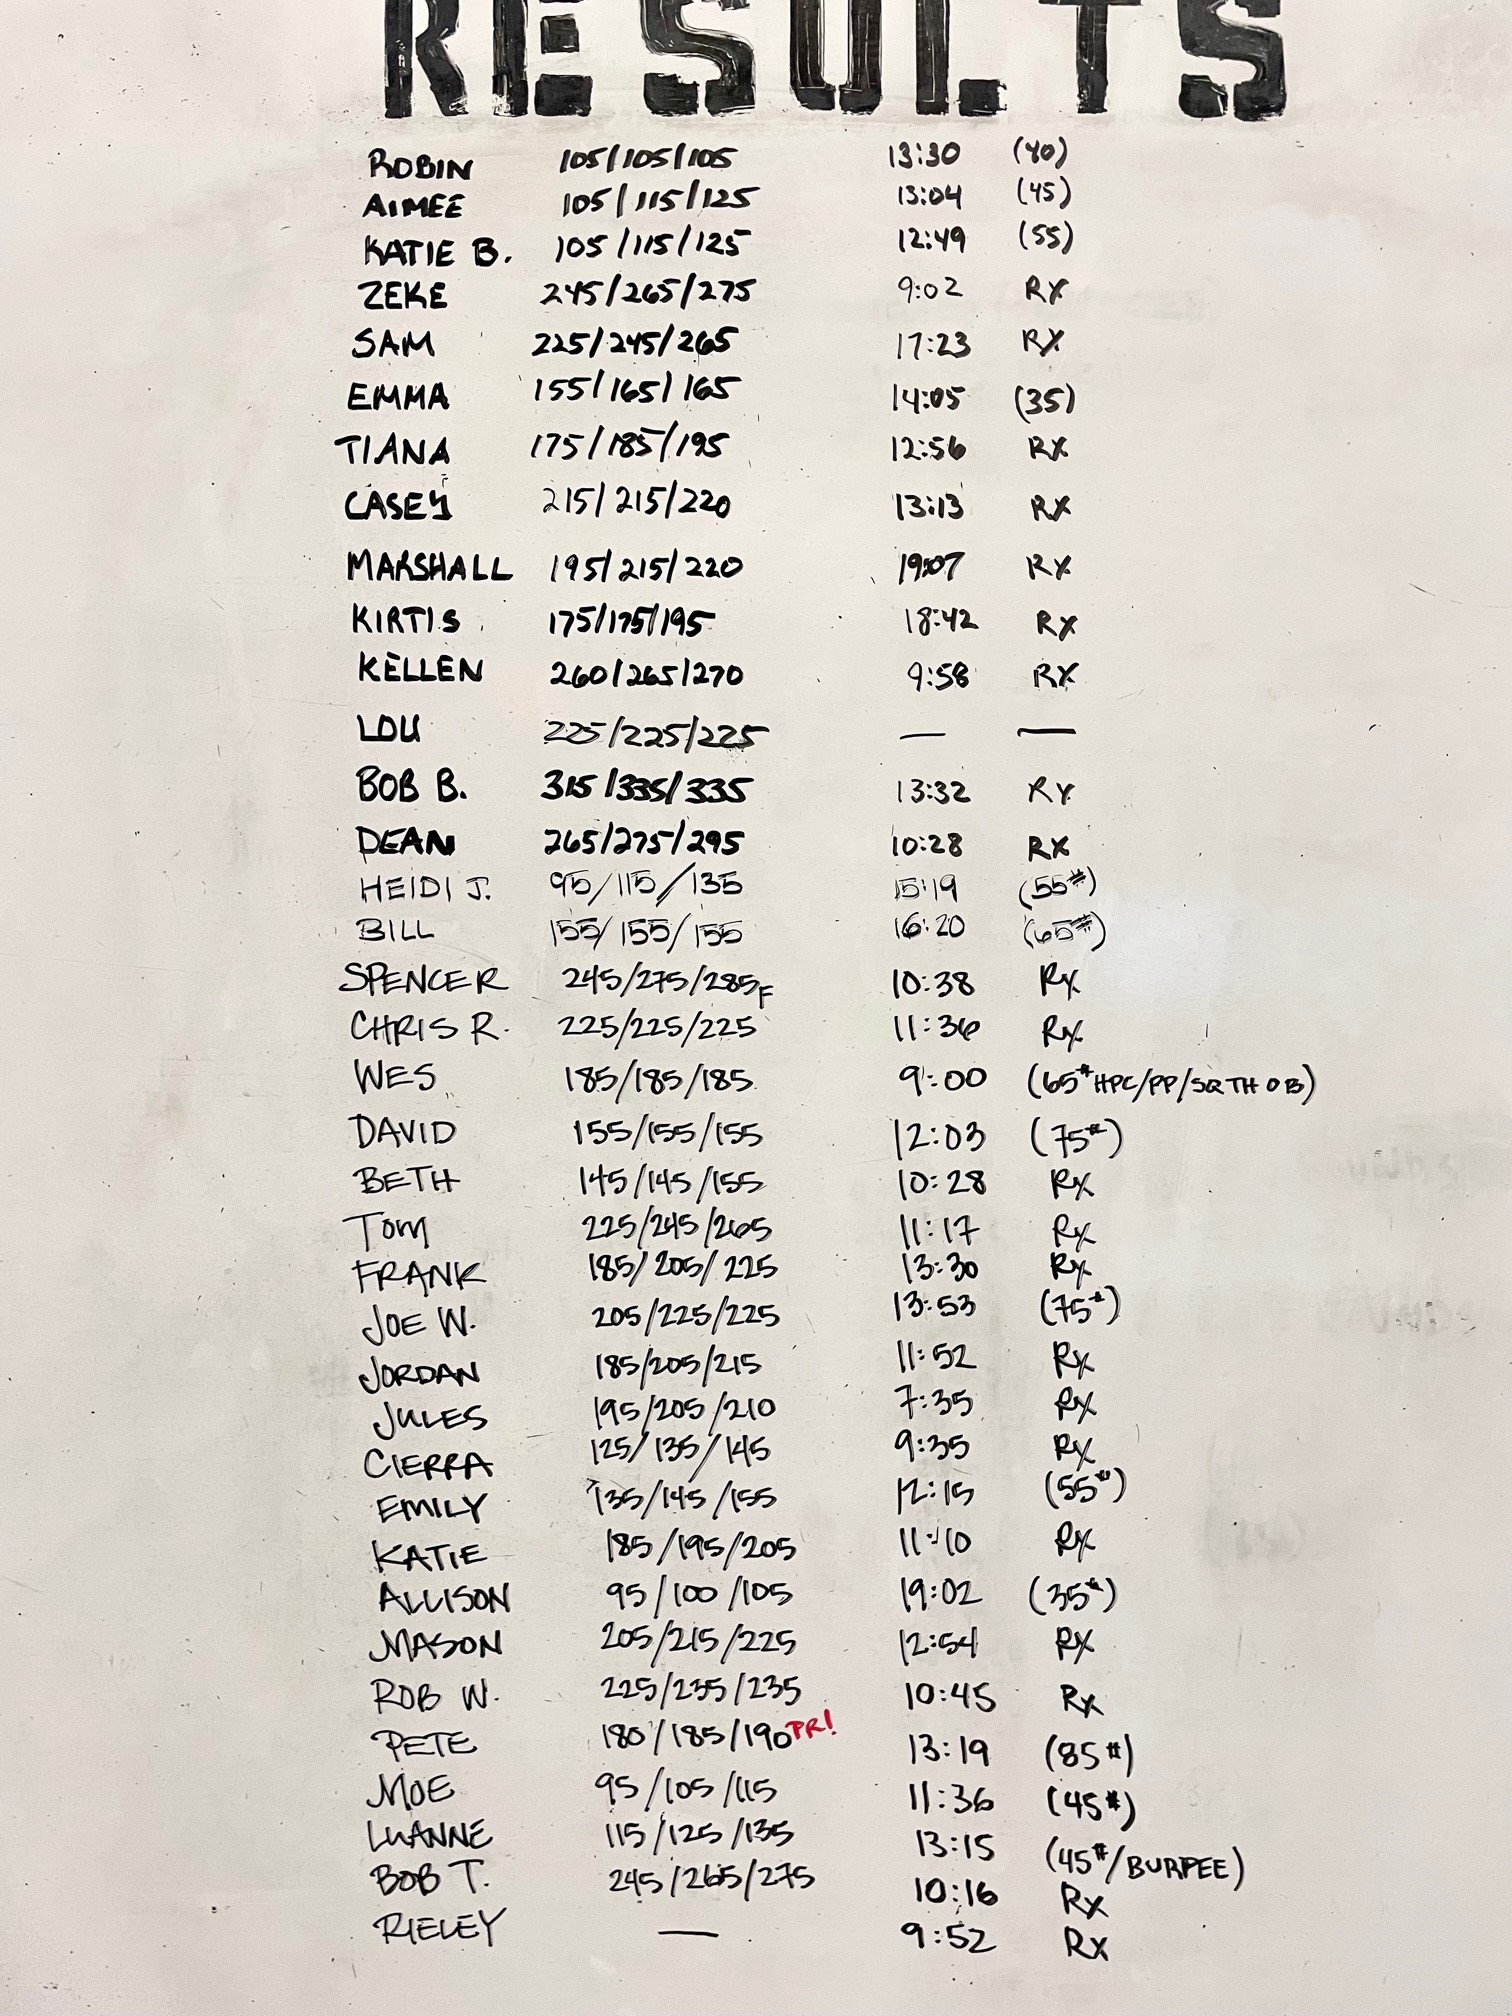 RESULTS
ROBIN 105/105/105 13:30 (40)
AIMEE 105/115/125 13:04 (45)
KATIE B. 105/115/125 12:49 (55)
ZEKE 245/265/275 9:02 RX
SAM 225/245/265 17:23 RX
EMMA 155/165/165 14:05 (35)
TIANA 175/185/195 12:56 RX
CASEY 215/215/220 13:13 RX
MARSHALL 195/215/220 19:07 RX
KIRTIS 175/175/195 18:42 RX
KELLEN 260/265/270 9:58 RX
LOU 225/225/225 — —
BOB B. 315/335/335 13:32 RX
DEAN 265/275/295 10:28 RX
HEIDI J. 95/115/135 15:19 (55#)
BILL 155/155/155 16:20 (65#)
SPENCER 245/275/285F 10:38 Rx
CHRIS R. 225/225/225 11:36 Rx
WES 185/185/185 9:00 (65# HPC/PP/SQ TH OB)
DAVID 155/155/155 12:03 (75#)
BETH 145/145/155 10:28 Rx
Tom 225/245/265 11:17 Rx
FRANK 185/205/225 13:30 Rx
JOE W. 205/225/225 13:53 (75#)
JORDAN 185/205/215 11:52 Rx
JULES 195/205/210 7:35 Rx
CIERRA 125/135/145 9:35 Rx
EMILY 135/145/155 12:15 (55#)
KATIE 185/195/205 11:10 Rx
ALLISON 95/100/105 19:02 (35#)
MASON 205/215/225 12:54 Rx
ROB W. 225/235/235 10:45 Rx
PETE 180/185/190 PR! 13:19 (85#)
MOE 95/105/115 11:36 (45#)
LUANNE 115/125/135 13:15 (45#/BURPEE)
BOB T. 245/265/275 10:16 Rx
RIELEY — 9:52 Rx